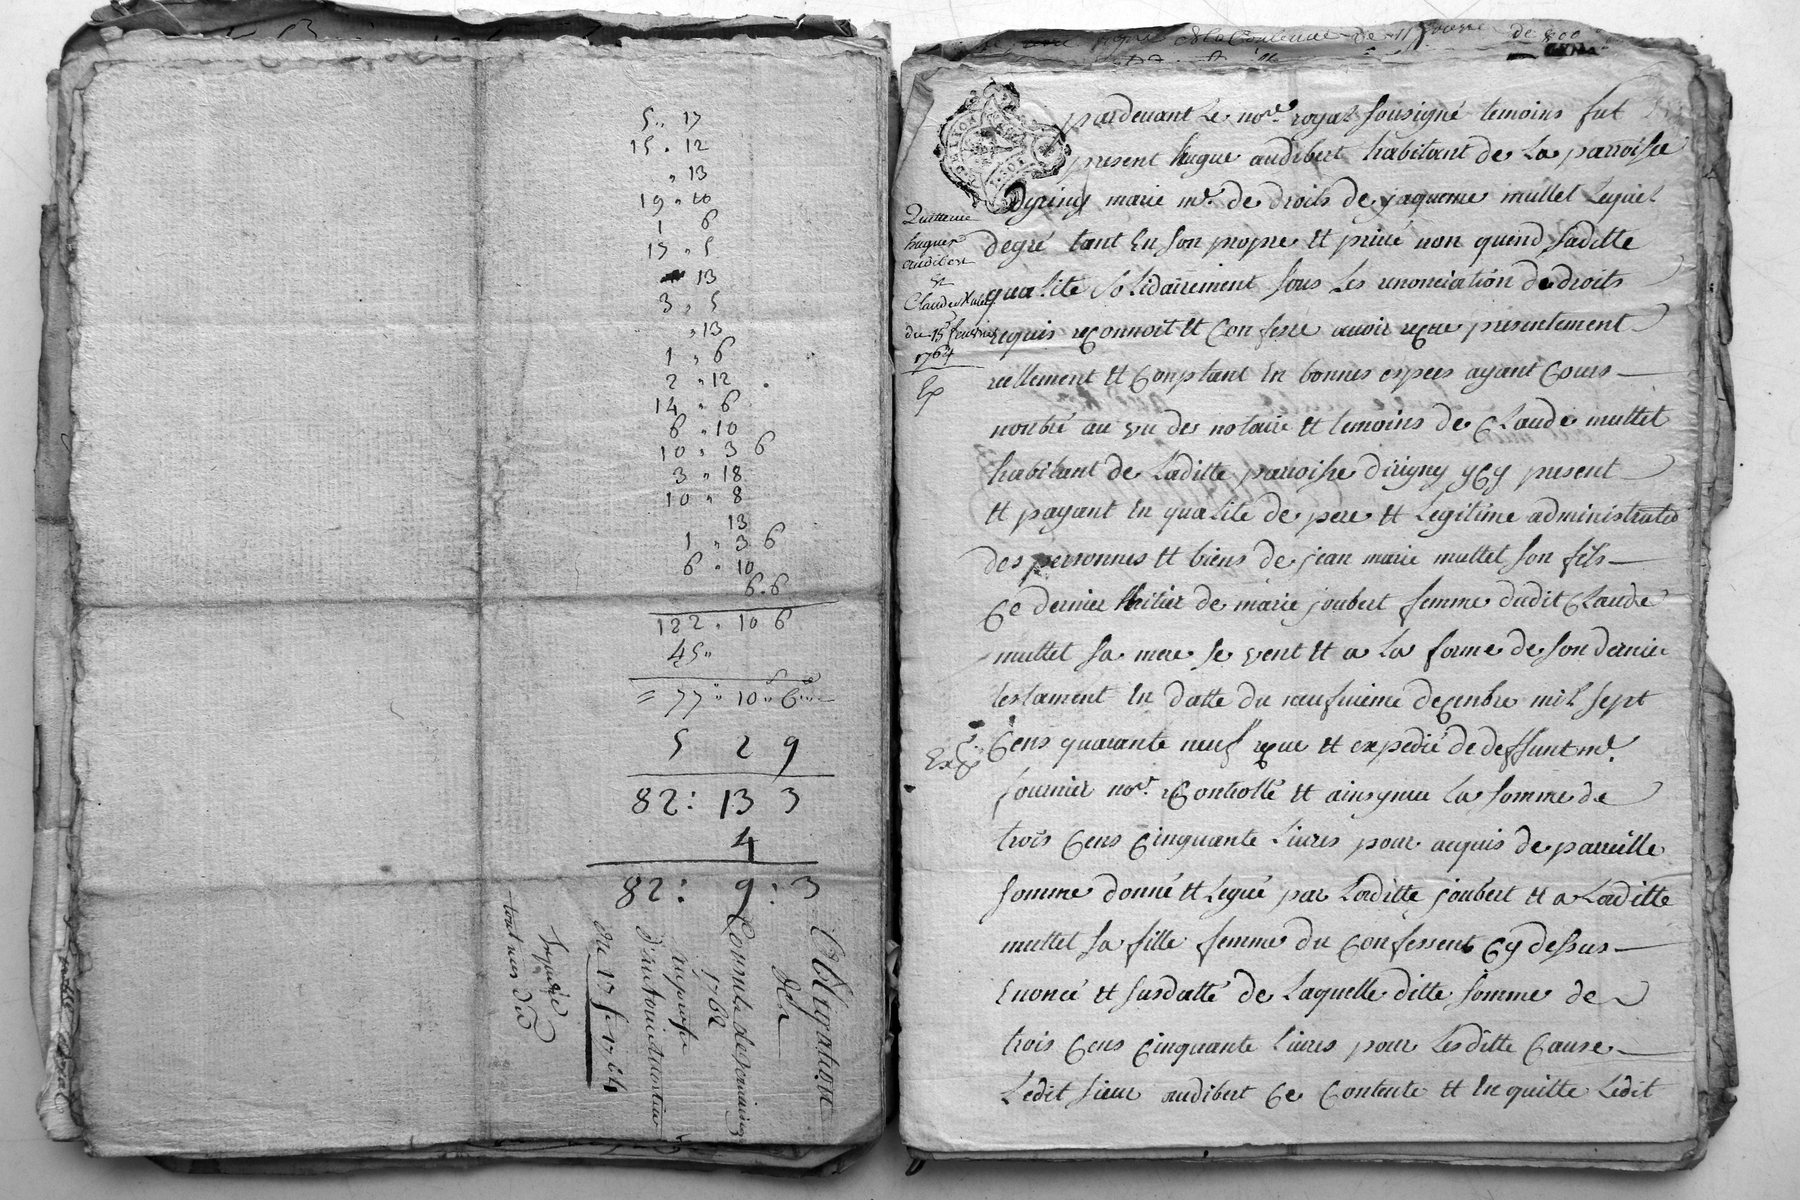 5 " 17
15 " 12
" 13
19 " 10
1 6
17 " 5
13
3 " 5
" 13
1 " 6
2 " 12
14 " 6
6 " 10
10 " 3 6
3 " 18
10 " 8
13
1 " 3 6
6 " 10
6 " 6
122 " 10 6
45 "
= 77 " 10 " 6
5 2 9
82 : 13 3
4
82 : 9 : 3
Obligature
de la
1762
du 17 f 1764
tout nier d'eu
pardevant Le nore. royal sousigné temoins fut
present hugue audibert habitant de La parroisse
dyriny marie me. de droits de jaqueme mullet Lequel
degré tant En son propre Et privé non quend saditte
qualité solidairement sous Les renonciation de droits
requis reconnoit Et Confesse avoir recue presentement
reellement Et Conptant En bonnes espees ayant Cours
nonbré au vu des notaire Et temoins de Claude mullet
habitant de Laditte parroisse dirigny ycy present
Et payant En qualité de pere Et Legitime administrate
des personnes Et biens de jean marie mullet son fils
Ce dernier heritier de marie joubert femme dudit Claude
mullet sa mere se vent Et a La forme de son dernier
testament En datte du neufvieme decenbre mil sept
Cens quarante neuf recue Et expedié de deffunt me.
fournier nore. Controllé Et ainsy La somme de
trois Cens Cinquante Livres pour acquis de pareille
somme donné Et Legué par Laditte joubert Et a Laditte
mullet sa fille femme du Confessent Cy dessus
Enoncé Et susdatté de Laquelle ditte somme de
trois Cens Cinquante Livres pour Lesditte Cause
Ledit sieur audibert Ce Contente Et En quitte Ledit
Quittence
hugues
audibert
Et
Claude Mulet
du 15 fevrier
1764
Ex